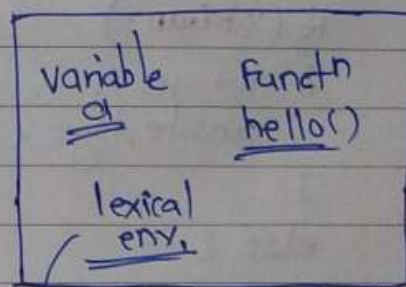 variable functn
a hello()
lexical
env.